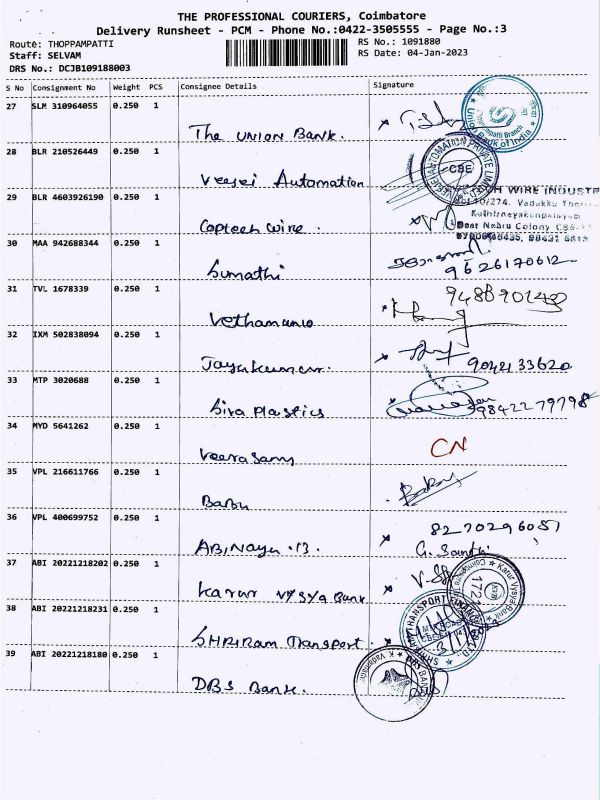 THE PROFESSIONAL COURIERS, Coimbatore
Delivery Runsheet - PCM - Phone No.:0422-3505555 - Page No.:3
Route: THOPPAMPATTI
Staff: SELVAM
DRS No.: DCJB109188003
RS No.: 1091880
RS Date: 04-Jan-2023
S No Consignment No Weight PCS Consignee Details Signature
27 SLM 310964055 0.250 1
The UNION Bank.
Union Bank of India
28 BLR 210526449 0.250 1
Veejei Automation
CBE
29 BLR 4603926190 0.250 1
Coptech Wire.
30 MAA 942688344 0.250 1
Sumathi
9626170612
31 TVL 1678339 0.250 1
Vethamania
32 IXM 502838094 0.250 1
Jayakumar.
9042133620
33 MTP 3020688 0.250 1
Siva Plastics
9842279798
34 MYD 5641262 0.250 1
Veerasamy
CN
35 VPL 216611766 0.250 1
Babu
36 VPL 400699752 0.250 1
ABiNaya .B.
8270296051
G. Santhi
37 ABI 20221218202 0.250 1
Karur Vysya Bank
Karur Vysya Bank
1721
38 ABI 20221218231 0.250 1
SHRIRam Transport.
39 ABI 20221218180 0.250 1
DBS Bank.